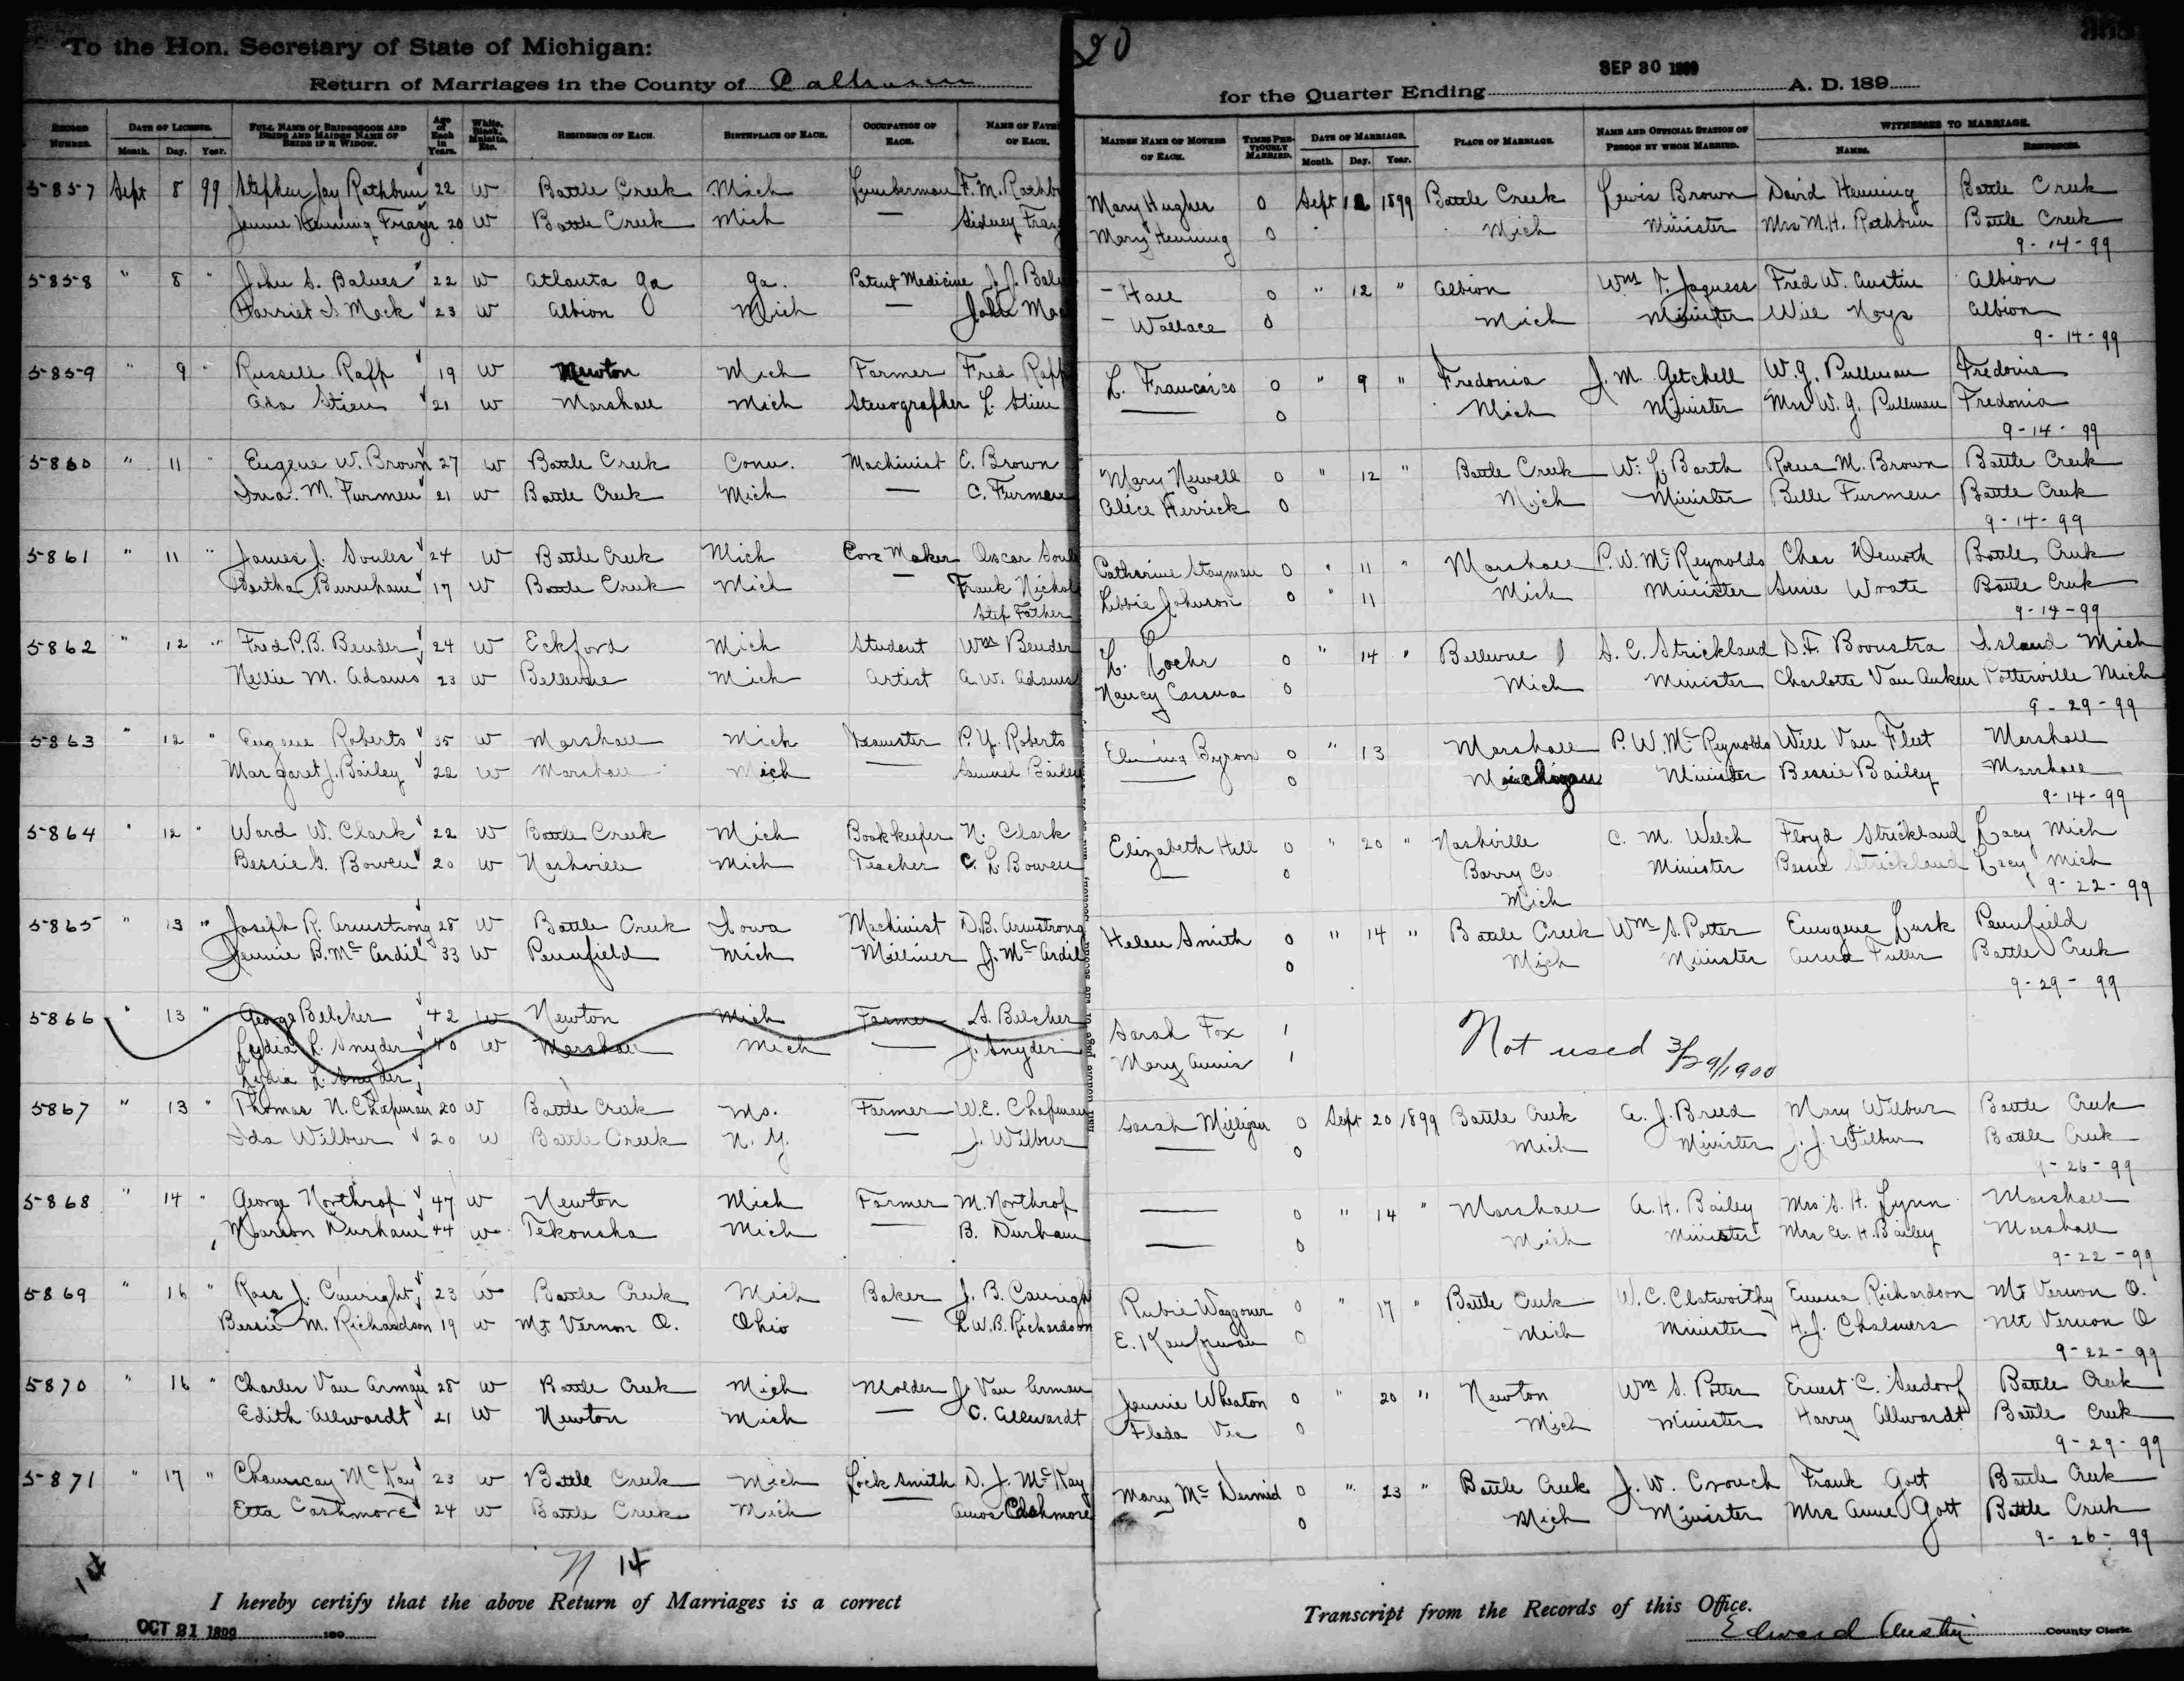 To the Hon. Secretary of State of Michigan:
Return of Marriages in the County of Calhoun
20 for the Quarter Ending SEP 30 1899 A. D. 189
RECORD NUMBER. DATE OF LICENSE. Month. Day. Year. FULL NAME OF BRIDEGROOM AND BRIDE AND MAIDEN NAME OF BRIDE IF A WIDOW. Age of Each in Years. White, Black, Mulatto, Etc. RESIDENCE OF EACH. BIRTHPLACE OF EACH. OCCUPATION OF EACH. NAME OF FATH OF EACH. MAIDEN NAME OF MOTHER OF EACH. TIMES PREVIOUSLY MARRIED. DATE OF MARRIAGE. Month. Day. Year. PLACE OF MARRIAGE. NAME AND OFFICIAL STATION OF PERSON BY WHOM MARRIED. WITNESSES TO MARRIAGE. NAMES. RESIDENCES.
5857 Sept 8 99 Stephen Jay Rathbun 22 W Battle Creek Mich Lumberman F. M. Rathbu Mary Hughes 0 Sept 12 1899 Battle Creek Lewis Brown David Henning Battle Creek
Jennie Henning Frazer 20 W Battle Creek Mich — Sidney Fraz Mary Henning 0 Mich Minister Mrs M. H. Rathbun Battle Creek
9-14-99
5858 " 8 " John S. Balues 22 W Atlanta Ga Ga. Patent Medicine J. J. Balu – Hall 0 " 12 " Albion Wm F. Jaquess Fred W. Austin Albion
Harriet I Mack 23 W Albion Mich — John Mac – Wallace 0 Mich Minister Will Noys Albion
9-14-99
5859 " 9 " Russell Rapp 19 W Newton Mich Farmer Fred Rapp L. Francisco 0 " 9 " Fredonia J. M. Getchell W. G. Pullman Fredonia
Ada Stien 21 W Marshall Mich Stenographer L. Stien — 0 Mich Minister Mrs W. G. Pullman Fredonia
9-14-99
5860 " 11 " Eugene W. Brown 27 W Battle Creek Conn. Machinist E. Brown Mary Newell 0 " 12 " Battle Creek W. L. Barth Rosua M. Brown Battle Creek
Ina. M. Furmen 21 W Battle Creek Mich — C. Furmen Alice Herrick 0 Mich Minister Belle Furmen Battle Creek
9-14-99
5861 " 11 " James J. Soules 24 W Battle Creek Mich Core Maker Oscar Soul Catharine Stayman 0 " 11 " Marshall P. W. McReynolds Chas Demoth Battle Creek
Bertha Burnham 17 W Battle Creek Mich — Frank Nichol Libbie Johnson 0 " 11 Mich Minister Susie Wrate Battle Creek
Step Father 9-14-99
5862 " 12 " Fred P. B. Bender 24 W Eckford Mich Student Wm Bender L. Lochr 0 " 14 " Bellevue S. C. Strickland D. F. Boonstra Island Mich
Nellie M. Adams 23 W Bellevue Mich Artist A. W. Adams Nancy Cassua 0 Mich Minister Charlotte Van Auken Potterville Mich
9-29-99
5863 " 12 " Eugene Roberts 35 W Marshall Mich Teamster P. Y. Roberts Elmina Byrom 0 " 13 Marshall P. W. McReynolds Will Van Fleet Marshall
Margaret J. Bailey 22 W Marshall Mich — Samuel Bailey — 0 Michigan Minister Bessie Bailey Marshall
9-14-99
5864 " 12 " Ward W. Clark 22 W Battle Creek Mich Bookkeeper N. Clark Elizabeth Hill 0 " 20 " Nashville C. M. Welch Floyd Strickland Lacy Mich
Bessie G. Bowen 20 W Nashville Mich Teacher C. L. Bowen — 0 Barry Co Minister Bessie Strickland Lacy Mich
Mich 9-22-99
5865 " 13 " Joseph R. Armstrong 28 W Battle Creek Iowa Machinist D. B. Armstrong Helen Smith 0 " 14 " Battle Creek Wm S. Potter Emogene Lusk Pennfield
Jennie B. McArdil 33 W Pennfield Mich Milliner J. McArdil 0 Mich Minister Anna Fuller Battle Creek
9-29-99
5866 " 13 " George Belcher 42 W Newton Mich Farmer S. Belcher Sarah Fox 1 Not used 3/29/1900
Lydia L. Snyder 40 W Marshall Mich — J. Snyder Mary Annis 1
Lydia L. Snyder
5867 " 13 " Thomas N. Chapman 20 W Battle Creek Mo. Farmer W. E. Chapman Sarah Milligan 0 Sept 20 1899 Battle Creek A. J. Breed Mary Wilbur Battle Creek
Ida Wilbur 20 W Battle Creek N. Y. — J. Wilbur — 0 Mich Minister J. J. Wilbur Battle Creek
9-26-99
5868 " 14 " George Northrop 47 W Newton Mich Farmer M. Northrop — 0 " 14 " Marshall A. H. Bailey Mrs S. H. Lynn Marshall
Marion Durham 44 W Tekonsha Mich — B. Durham — 0 Mich Minister Mrs A. H. Bailey Marshall
9-22-99
5869 " 16 " Ross J. Canright 23 W Battle Creek Mich Baker J. B. Canrigh Rubie Waggoner 0 " 17 " Battle Creek W. C. Clatworthy Emma Richardson Mt Vernon O.
Bessie M. Richardson 19 W Mt Vernon O. Ohio — L. W. B. Richardson E. Kaufman 0 Mich Minister H. J. Chalmers Mt Vernon O
9-22-99
5870 " 16 " Charles Van Arman 28 W Battle Creek Mich Molder J. Van Arman Jennie Wheaton 0 " 20 " Newton Wm S. Potter Ernest C. Seedorf Battle Creek
Edith Allwardt 21 W Newton Mich — C. Allwardt Fleda Vic 0 Mich Minister Harry Allwardt Battle Creek
9-29-99
5871 " 17 " Chauncay McKay 23 W Battle Creek Mich Lock Smith D. J. McKay Mary McDermid 0 " 23 " Battle Creek J. W. Crouch Frank Gott Battle Creek
Etta Cashmore 24 W Battle Creek Mich — Amos Cashmore 0 Mich Minister Mrs Anne Gott Battle Creek
9-26-99
14 N 14
I hereby certify that the above Return of Marriages is a correct Transcript from the Records of this Office.
OCT 21 1899 189 Edward Austin County Clerk.